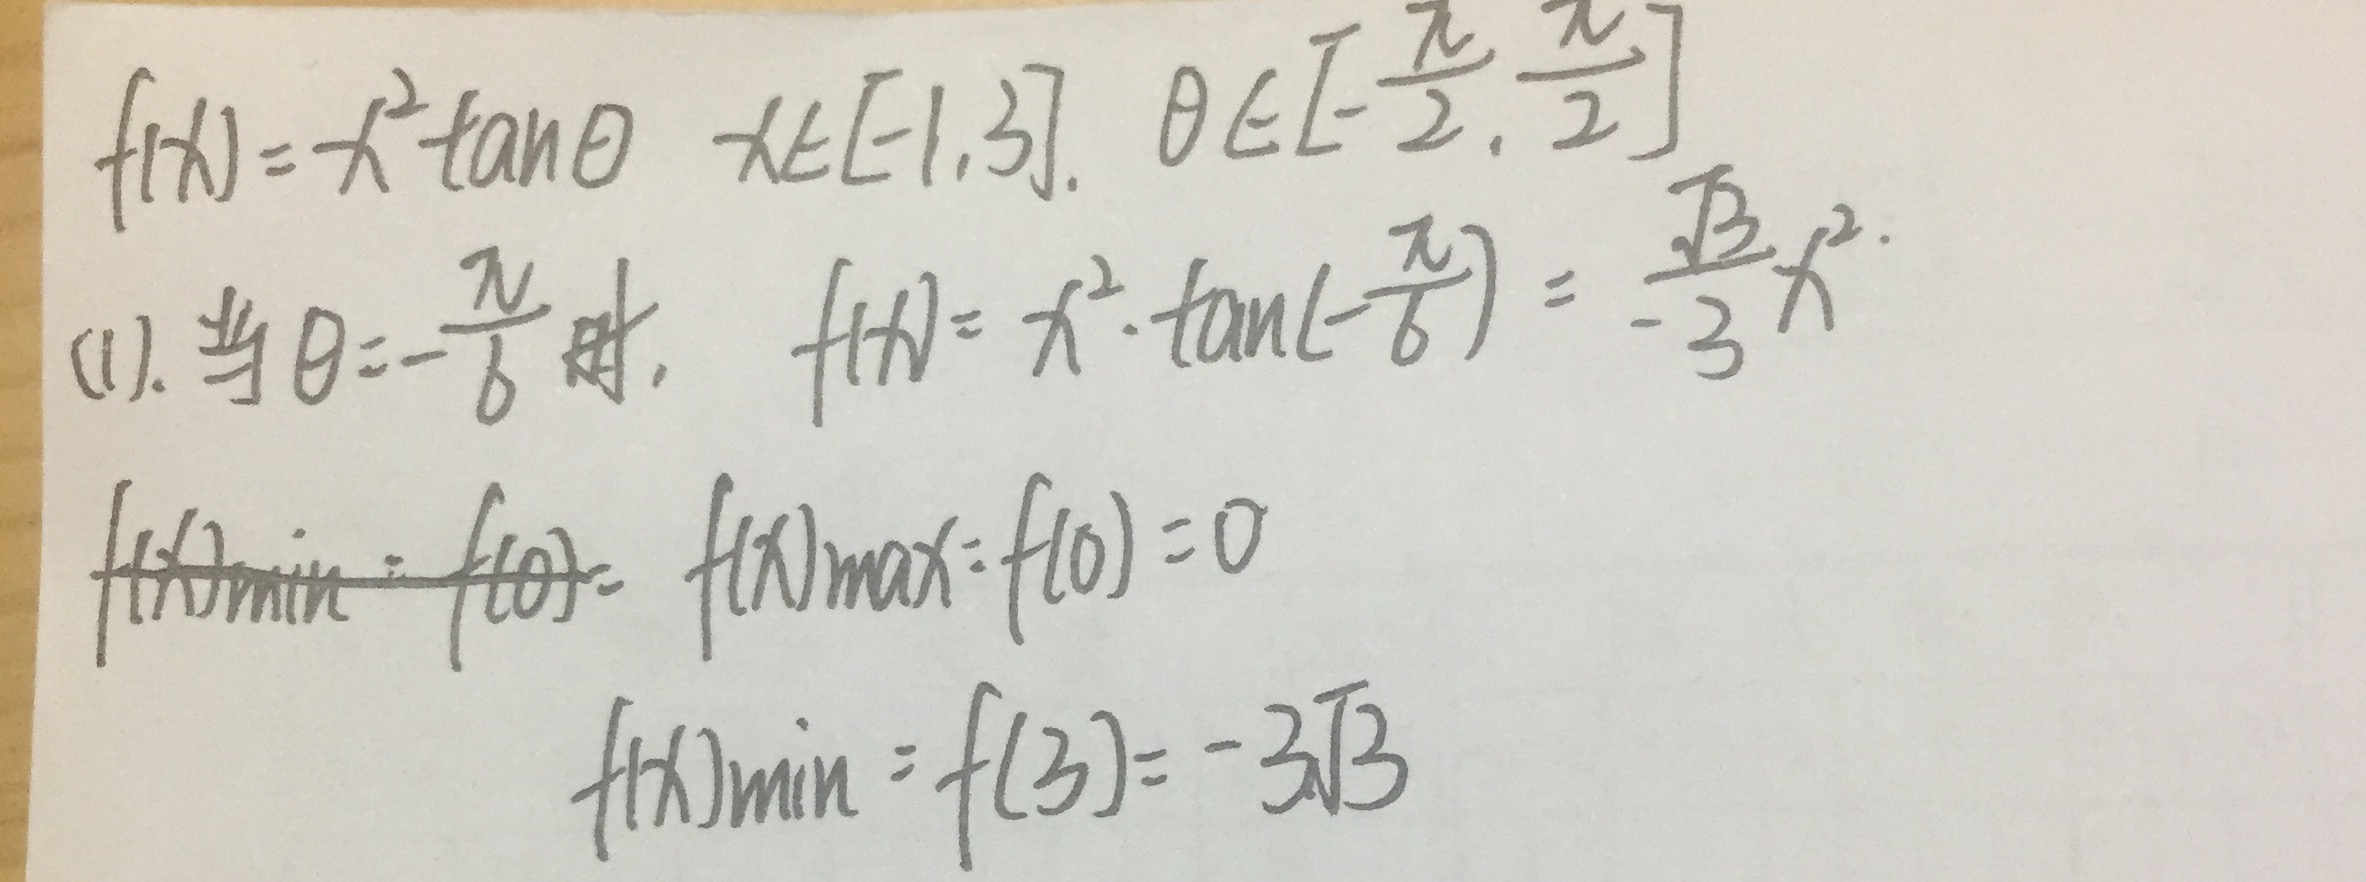 f(x)=x²tanθ x∈[-1,3]. θ∈[-π/2,π/2]
(1).当θ=-π/6时, f(x)=x²·tan(-π/6)=√3/-3 x².
f(x)min=f(0)= f(x)max=f(0)=0
f(x)min=f(3)=-3√3